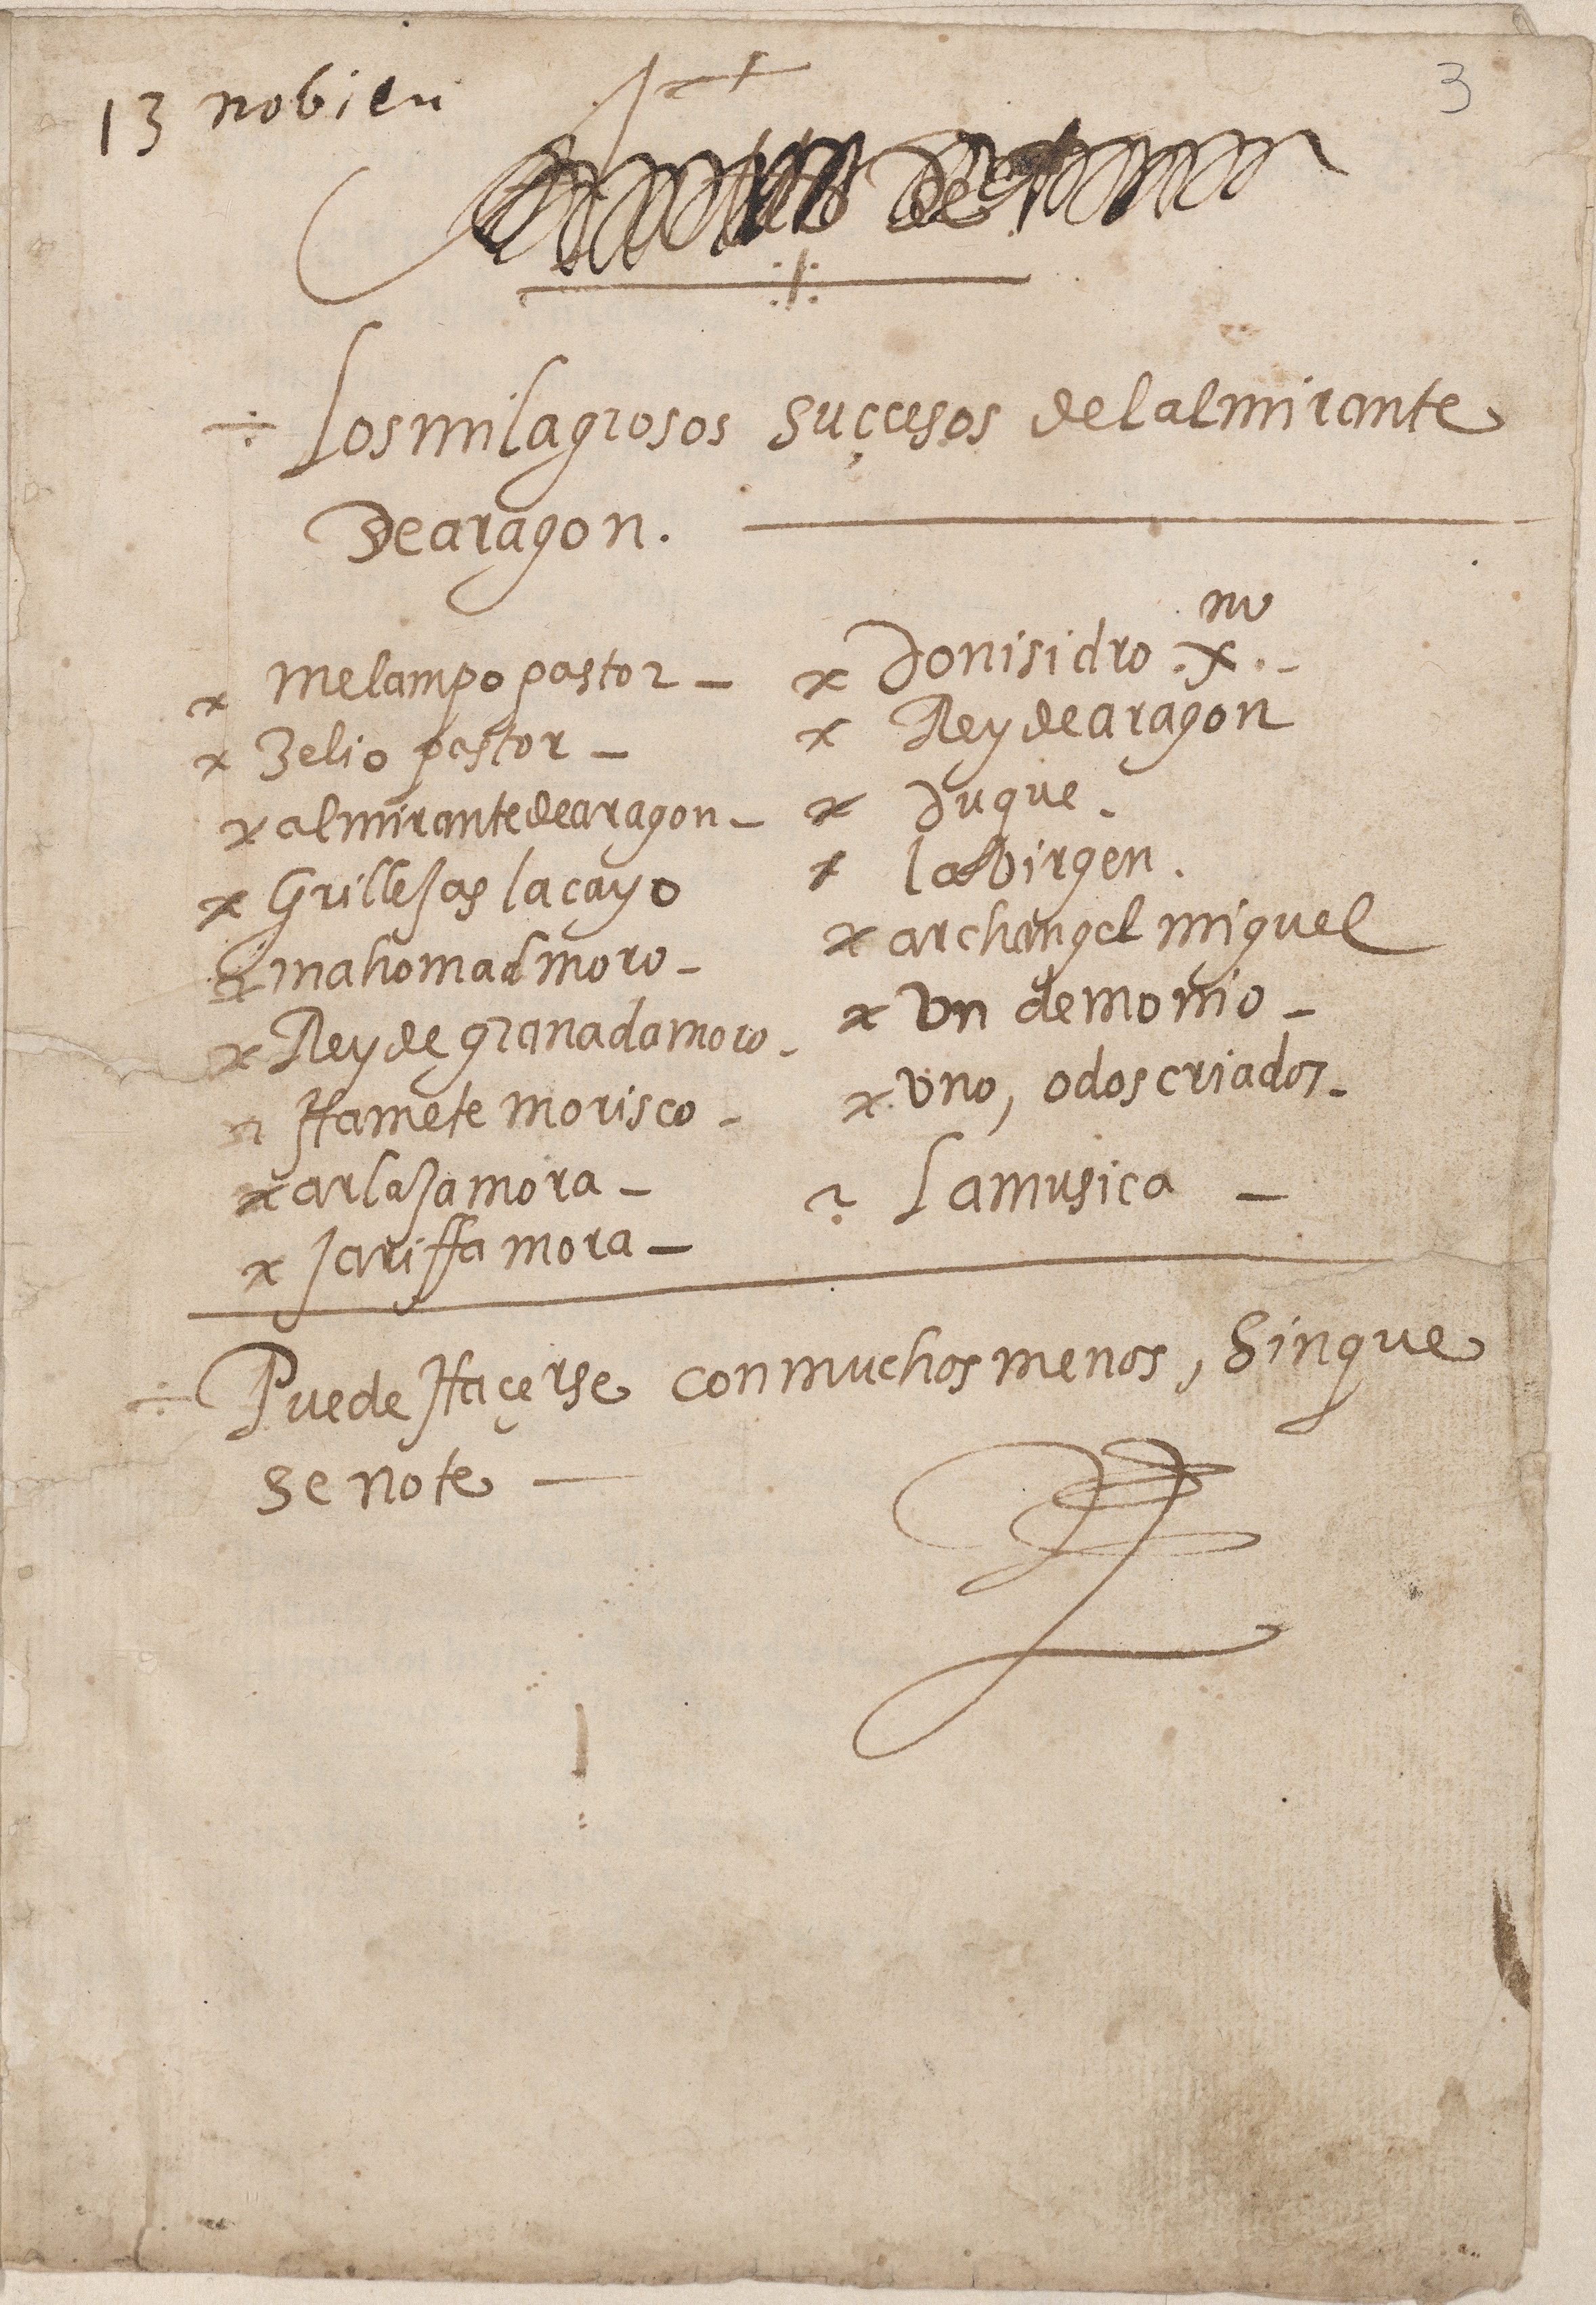 13 nobien
3
Los milagrosos suççesos del almirante
De aragon.
Melampo pastor
Zelio pastor
almirante de aragon
Grillejas lacayo
mahomad moro
Rey de granada moro
Hamete morisco
arlaja mora
jariffa mora
Don isidro
Rey de aragon
Duque
la Virgen
archangel miguel
Vn demonio
Vno, o dos criados
La musica
Puede Haçerse con muchos menos, sin que
se note